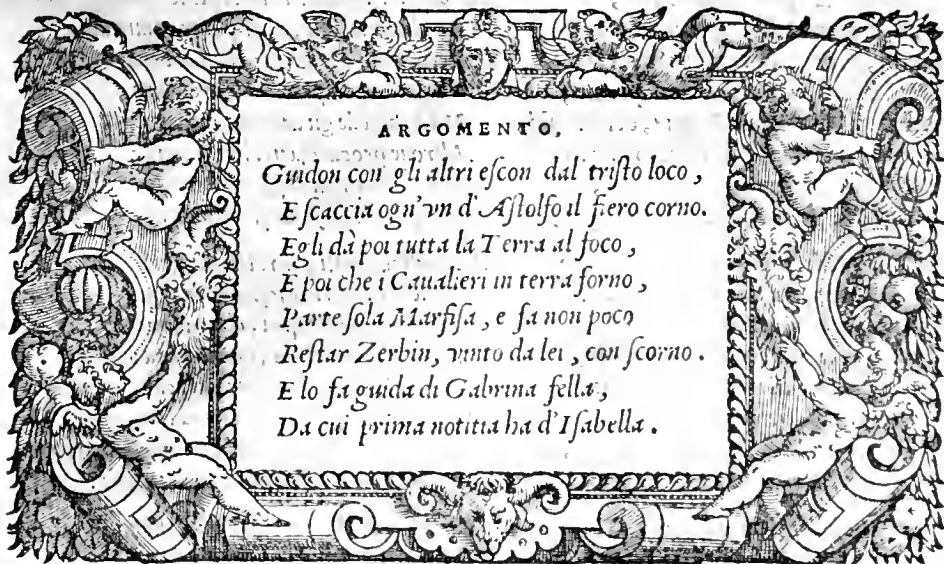 ARGOMENTO.
Guidon con gli altri eſcon dal triſto loco,
E ſcaccia ogn'vn d'Aſtolfo il fiero corno.
Egli dà poi tutta la Terra al foco,
E poi che i Caualieri in terra forno,
Parte ſola Marfiſa, e fa non poco
Reſtar Zerbin, vinto da lei, con ſcorno.
E lo fa guida di Gabrina fella,
Da cui prima notitia ha d'Iſabella.